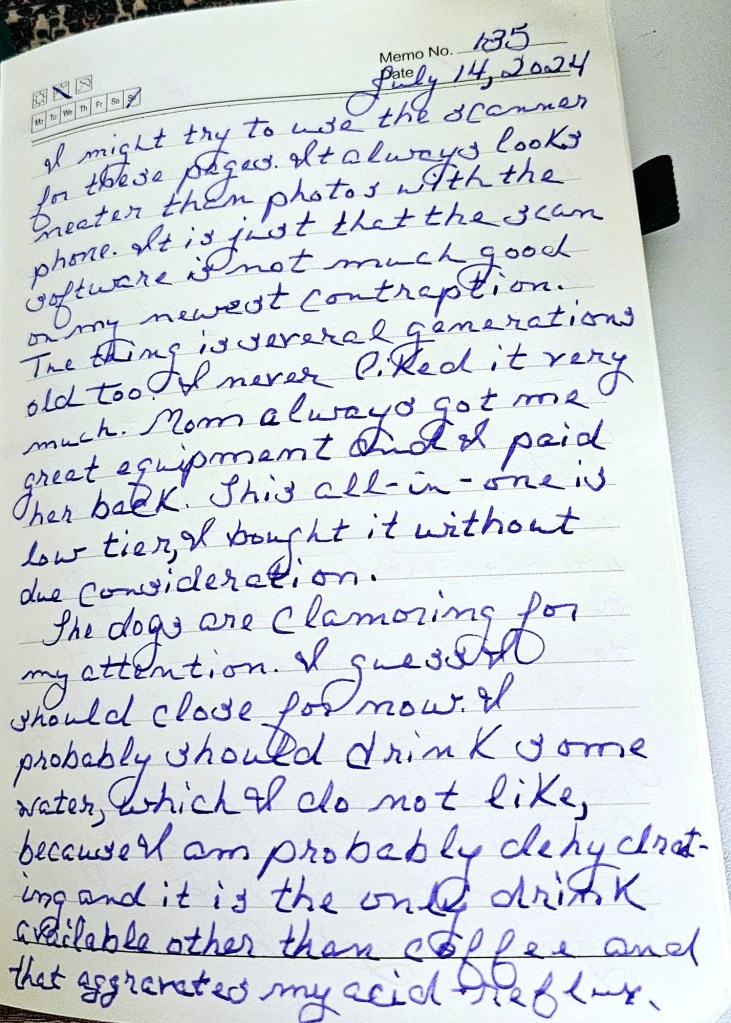 Memo No. 135
Date July 14, 2024
Mo Tu We Th Fr Sa Su
I might try to use the scanner
for these pages. It always looks
neater than photos with the
phone. It is just that the scan
software is not much good
on my newest contraption.
The thing is several generations
old too. I never liked it very
much. Mom always got me
great equipment and I paid
her back. This all-in-one is
low tier, I bought it without
due consideration.
The dogs are clamoring for
my attention. I guess I
should close for now. I
probably should drink some
water, which I do not like,
because I am probably dehydrat-
ing and it is the only drink
available other than coffee and
that aggravates my acid reflux.